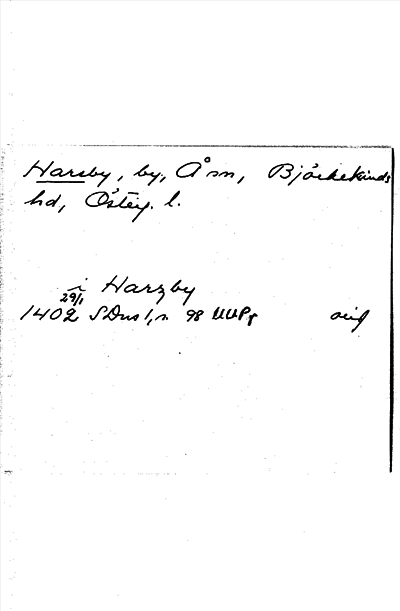 Harsby, by, Å sn, Björkekinds
hd, Östeg. l.
i Harzby
29/1
1402 SDns 1, s. 98 UUPg orig